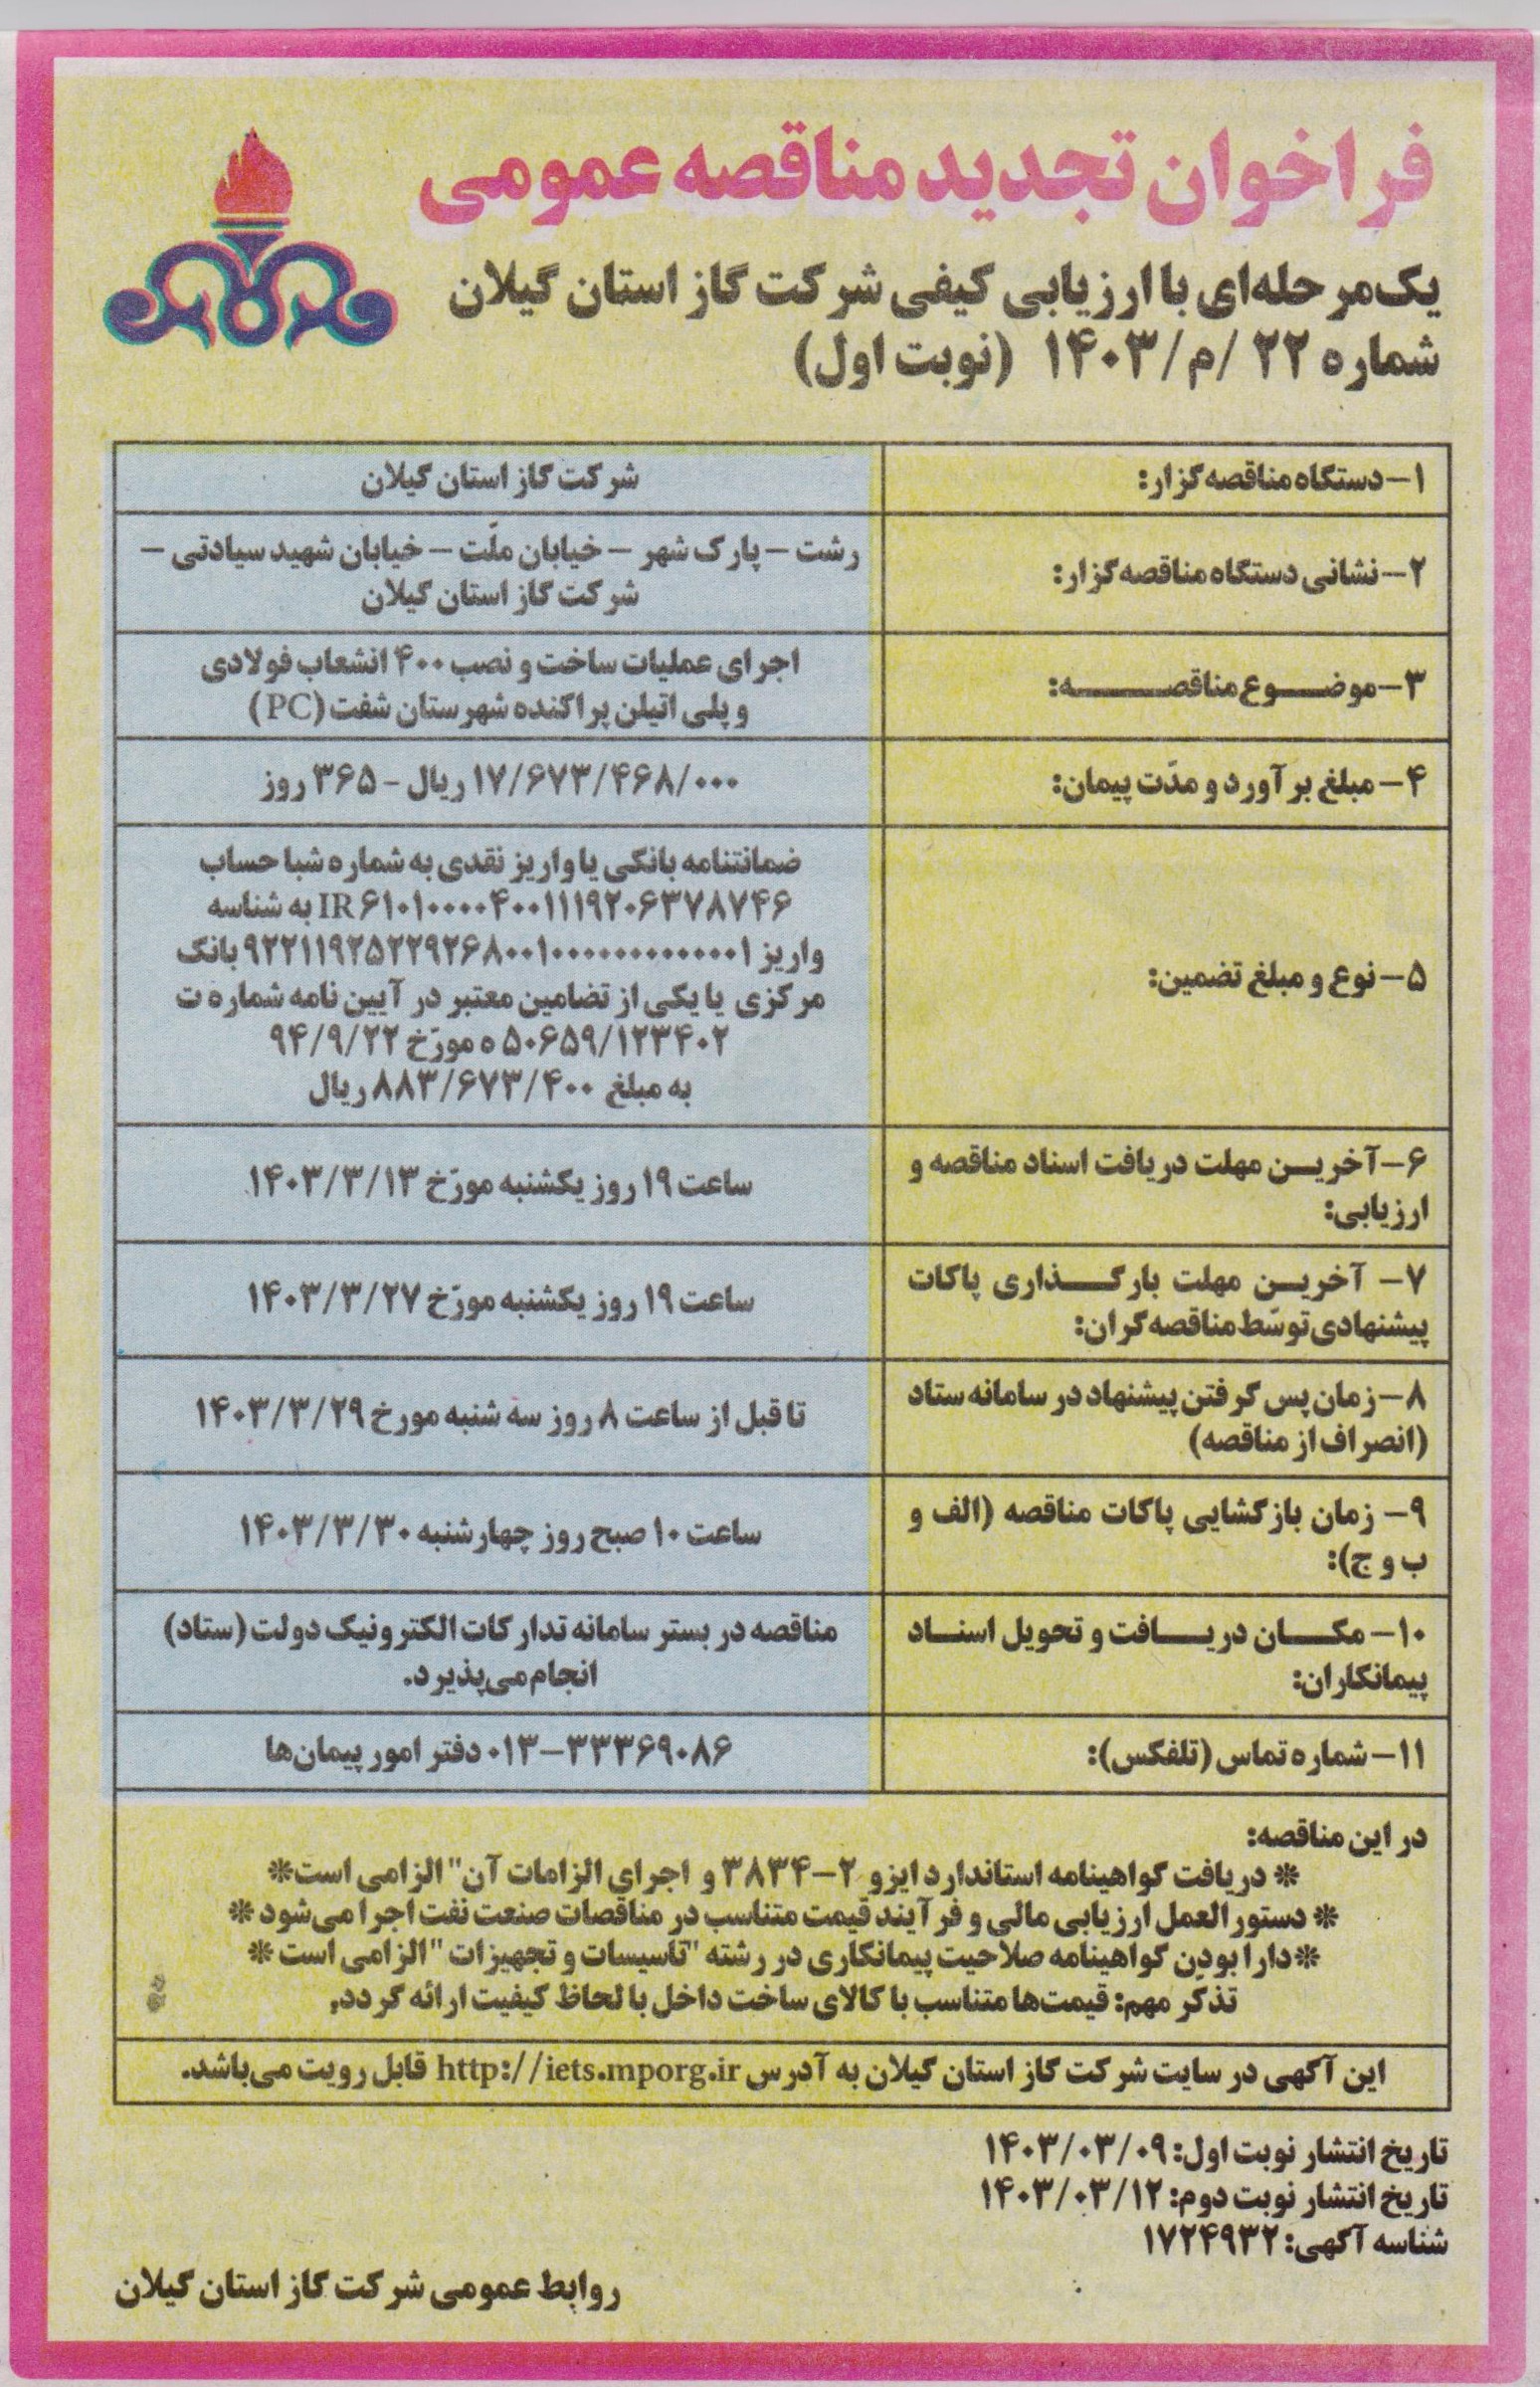 فراخوان تجدید مناقصه عمومی
یک‌مرحله‌ای با ارزیابی کیفی شرکت گاز استان گیلان
شماره ۲۲ /م/۱۴۰۳ (نوبت اول)
۱- دستگاه مناقصه‌گزار:
شرکت گاز استان گیلان
۲- نشانی دستگاه مناقصه‌گزار:
رشت – پارک شهر – خیابان ملّت – خیابان شهید سیادتی –
شرکت گاز استان گیلان
۳- موضوع مناقصه:
اجرای عملیات ساخت و نصب ۴۰۰ انشعاب فولادی
و پلی اتیلن پراکنده شهرستان شفت (PC)
۴- مبلغ برآورد و مدّت پیمان:
۱۷/۶۷۳/۴۶۸/۰۰۰ ریال - ۳۶۵ روز
۵- نوع و مبلغ تضمین:
ضمانتنامه بانکی یا واریز نقدی به شماره شبا حساب
IR ۶۱۰۱۰۰۰۰۴۰۰۱۱۱۹۲۰۶۳۷۸۷۴۶ به شناسه
واریز ۹۲۲۱۱۹۲۵۲۲۹۲۶۸۰۰۱۰۰۰۰۰۰۰۰۰۰۰۰۰۱ بانک
مرکزی یا یکی از تضامین معتبر در آیین نامه شماره ت
۵۰۶۵۹/۱۲۳۴۰۲ ه مورّخ ۹۴/۹/۲۲
به مبلغ ۸۸۳/۶۷۳/۴۰۰ ریال
۶- آخرین مهلت دریافت اسناد مناقصه و
ارزیابی:
ساعت ۱۹ روز یکشنبه مورّخ ۱۴۰۳/۳/۱۳
۷- آخرین مهلت بارگذاری پاکات
پیشنهادی توسّط مناقصه‌گران:
ساعت ۱۹ روز یکشنبه مورّخ ۱۴۰۳/۳/۲۷
۸- زمان پس گرفتن پیشنهاد در سامانه ستاد
(انصراف از مناقصه)
تا قبل از ساعت ۸ روز سه شنبه مورخ ۱۴۰۳/۳/۲۹
۹- زمان بازگشایی پاکات مناقصه (الف و
ب و ج):
ساعت ۱۰ صبح روز چهارشنبه ۱۴۰۳/۳/۳۰
۱۰- مکان دریافت و تحویل اسناد
پیمانکاران:
مناقصه در بستر سامانه تدارکات الکترونیک دولت (ستاد)
انجام می‌پذیرد.
۱۱- شماره تماس (تلفکس):
۰۱۳-۳۳۳۶۹۰۸۶ دفتر امور پیمان‌ها
در این مناقصه:
* دریافت گواهینامه استاندارد ایزو ۲-۳۸۳۴ و اجرای الزامات آن" الزامی است*
* دستورالعمل ارزیابی مالی و فرآیند قیمت متناسب در مناقصات صنعت نفت اجرا می‌شود *
*دارا بودن گواهینامه صلاحیت پیمانکاری در رشته "تاسیسات و تجهیزات" الزامی است *
تذکر مهم: قیمت‌ها متناسب با کالای ساخت داخل با لحاظ کیفیت ارائه گردد.
این آگهی در سایت شرکت گاز استان گیلان به آدرس http://iets.mporg.ir قابل رویت می‌باشد.
تاریخ انتشار نوبت اول: ۱۴۰۳/۰۳/۰۹
تاریخ انتشار نوبت دوم: ۱۴۰۳/۰۳/۱۲
شناسه آگهی: ۱۷۲۴۹۳۲
روابط عمومی شرکت گاز استان گیلان